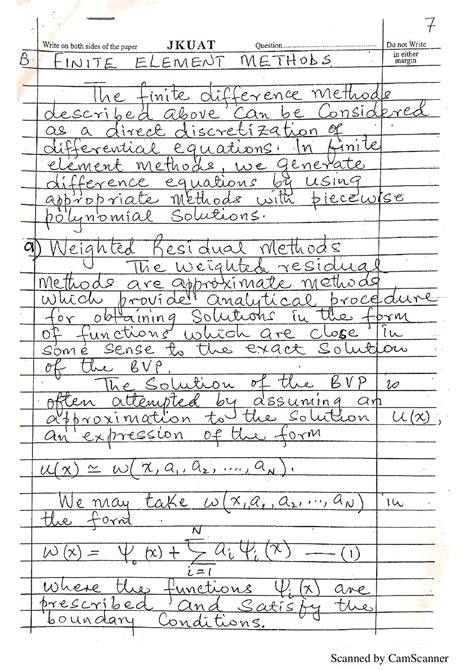 7
Write on both sides of the paper JKUAT Question.......... Do not Write in either margin
B FINITE ELEMENT METHODS
The finite difference methods
described above can be considered
as a direct discretization of
differential equations. In finite
element methods, we generate
difference equations by using
appropriate methods with piecewise
polynomial solutions.
a) Weighted Residual Methods
The weighted residual
methods are approximate methods
which provide analytical procedure
for obtaining solutions in the form
of functions which are close in
some sense to the exact solution
of the BVP.
The solution of the BVP is
often attempted by assuming an
approximation to the solution u(x),
an expression of the form
u(x) ≃ w(x, a₁, a₂, ...., a_N).
We may take w(x, a₁, a₂, ..., a_N) in
the form
w(x) = Ψ₀(x) + Σ_{i=1}^{N} aᵢ Ψᵢ(x) — (1)
where the functions Ψᵢ(x) are
prescribed and satisfy the
boundary conditions.
Scanned by CamScanner